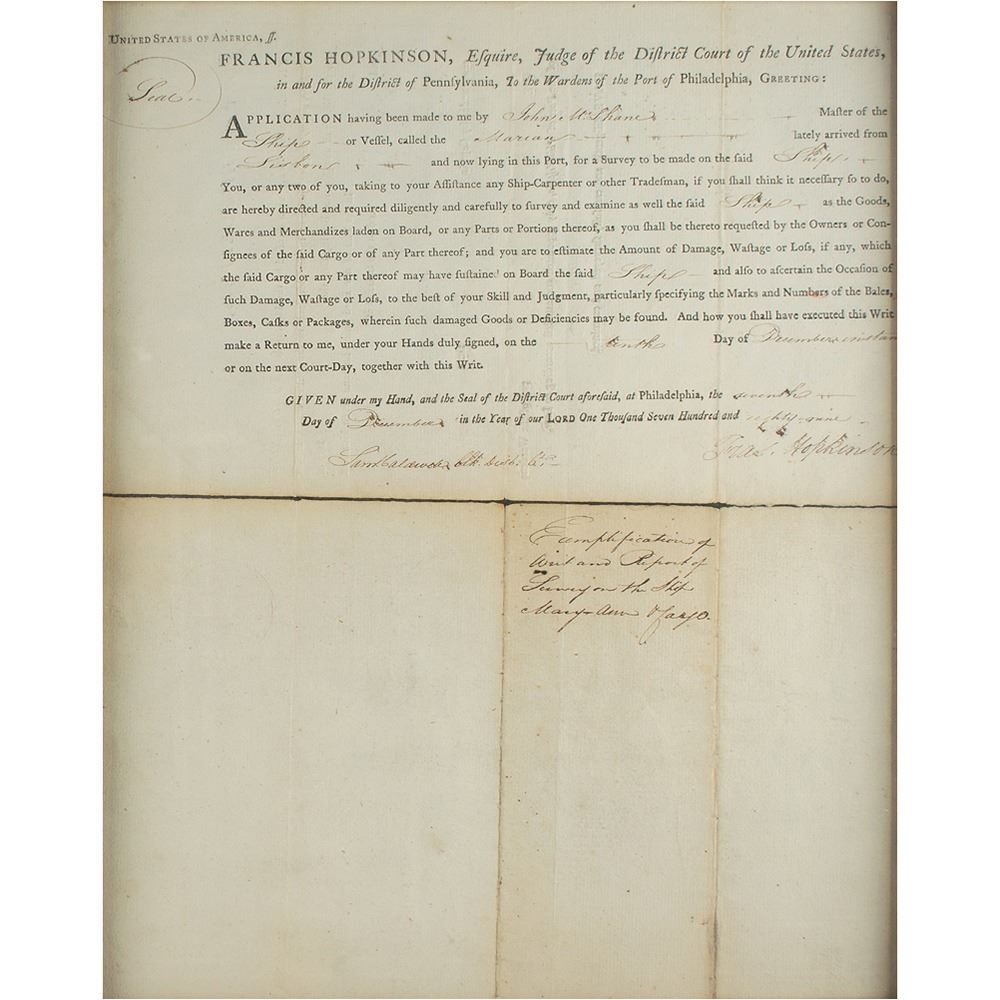 UNITED STATES OF AMERICA, ſſ.
Seal
FRANCIS HOPKINSON, Eſquire, Judge of the Diſtrict Court of the United States,
in and for the Diſtrict of Pennſylvania, To the Wardens of the Port of Philadelphia, GREETING:
APPLICATION having been made to me by John McShane Maſter of the
Ship or Veſſel, called the Marian lately arrived from
Lisbon and now lying in this Port, for a Survey to be made on the ſaid Ship
You, or any two of you, taking to your Aſſiſtance any Ship-Carpenter or other Tradeſman, if you ſhall think it neceſſary ſo to do,
are hereby directed and required diligently and carefully to ſurvey and examine as well the ſaid Ship as the Goods,
Wares and Merchandizes laden on Board, or any Parts or Portions thereof, as you ſhall be thereto requeſted by the Owners or Con-
ſignees of the ſaid Cargo or of any Part thereof; and you are to eſtimate the Amount of Damage, Waſtage or Loſs, if any, which
the ſaid Cargo or any Part thereof may have ſuſtained on Board the ſaid Ship and alſo to aſcertain the Occaſion of
ſuch Damage, Waſtage or Loſs, to the beſt of your Skill and Judgment, particularly ſpecifying the Marks and Numbers of the Bales,
Boxes, Caſks or Packages, wherein ſuch damaged Goods or Deficiencies may be found. And how you ſhall have executed this Writ
make a Return to me, under your Hands duly ſigned, on the tenth Day of December instan
or on the next Court-Day, together with this Writ.
GIVEN under my Hand, and the Seal of the Diſtrict Court aforeſaid, at Philadelphia, the seventh
Day of December in the Year of our LORD One Thouſand Seven Hundred and eighty-nine
Fras. Hopkinson
Sam Caldwell Clk. Dist. Ct.
Exemplification of
Writ and Report of
Survey on the Ship
Mary Ann & Cargo.